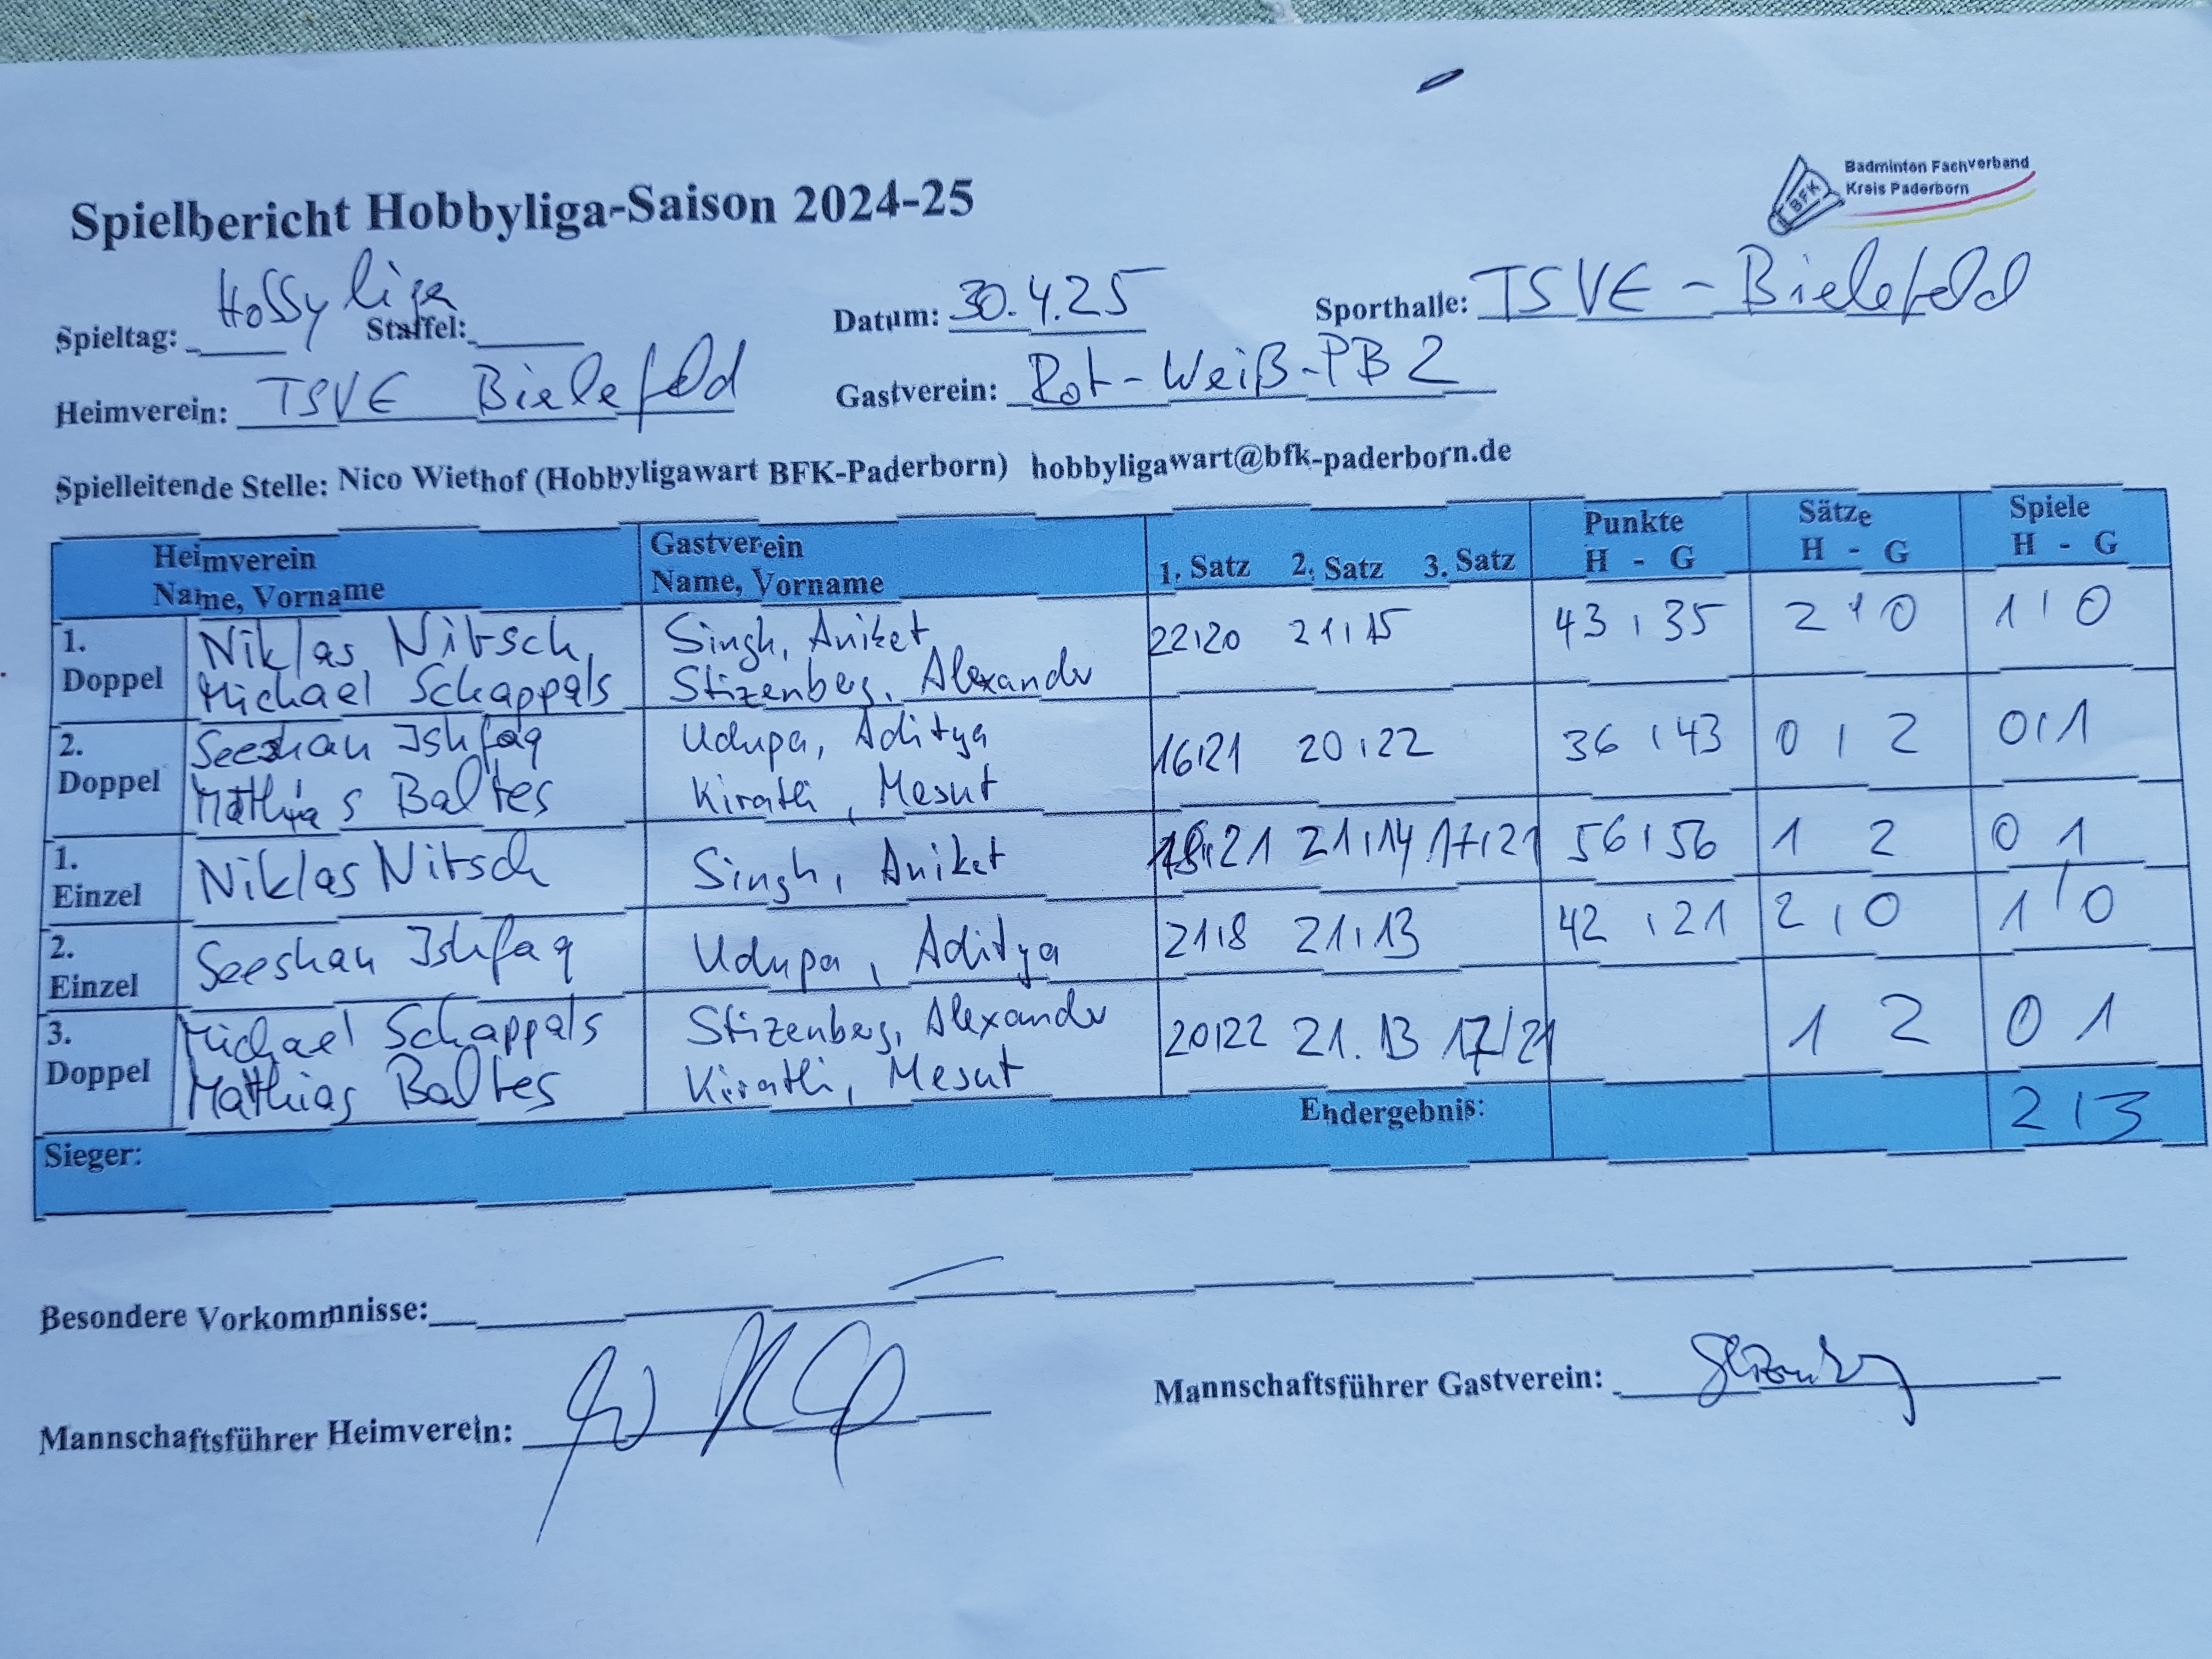 Badminton Fachverband
Kreis Paderborn
BFK
Spielbericht Hobbyliga-Saison 2024-25
Spieltag: Hobbyliga Staffel: Datum: 30.4.25 Sporthalle: TSVE - Bielefeld
Heimverein: TSVE Bielefeld Gastverein: Rot-Weiß-PB 2
Spielleitende Stelle: Nico Wiethof (Hobbyligawart BFK-Paderborn) hobbyligawart@bfk-paderborn.de
Heimverein Gastverein Punkte Sätze Spiele
Name, Vorname Name, Vorname 1. Satz 2. Satz 3. Satz H - G H - G H - G
1. Niklas Nitsch, Singh, Aniket 22:20 21:15 43:35 2:0 1:0
Doppel Michael Schappals Stizenberg, Alexander
2. Seeshan Ishfaq Udupa, Aditya 16:21 20:22 36:43 0:2 0:1
Doppel Mathias Baltes Kiratli, Mesut
1. Niklas Nitsch Singh, Aniket 18:21 21:14 17:21 56:56 1 2 0 1
Einzel
2. Seeshan Ishfaq Udupa, Aditya 21:8 21:13 42:21 2:0 1:0
Einzel
3. Michael Schappals Stizenberg, Alexander 20:22 21.13 17/21 1 2 0 1
Doppel Mathias Baltes Kiratli, Mesut
Endergebnis: 2:3
Sieger:
Besondere Vorkommnisse:
Mannschaftsführer Heimverein: Mannschaftsführer Gastverein: